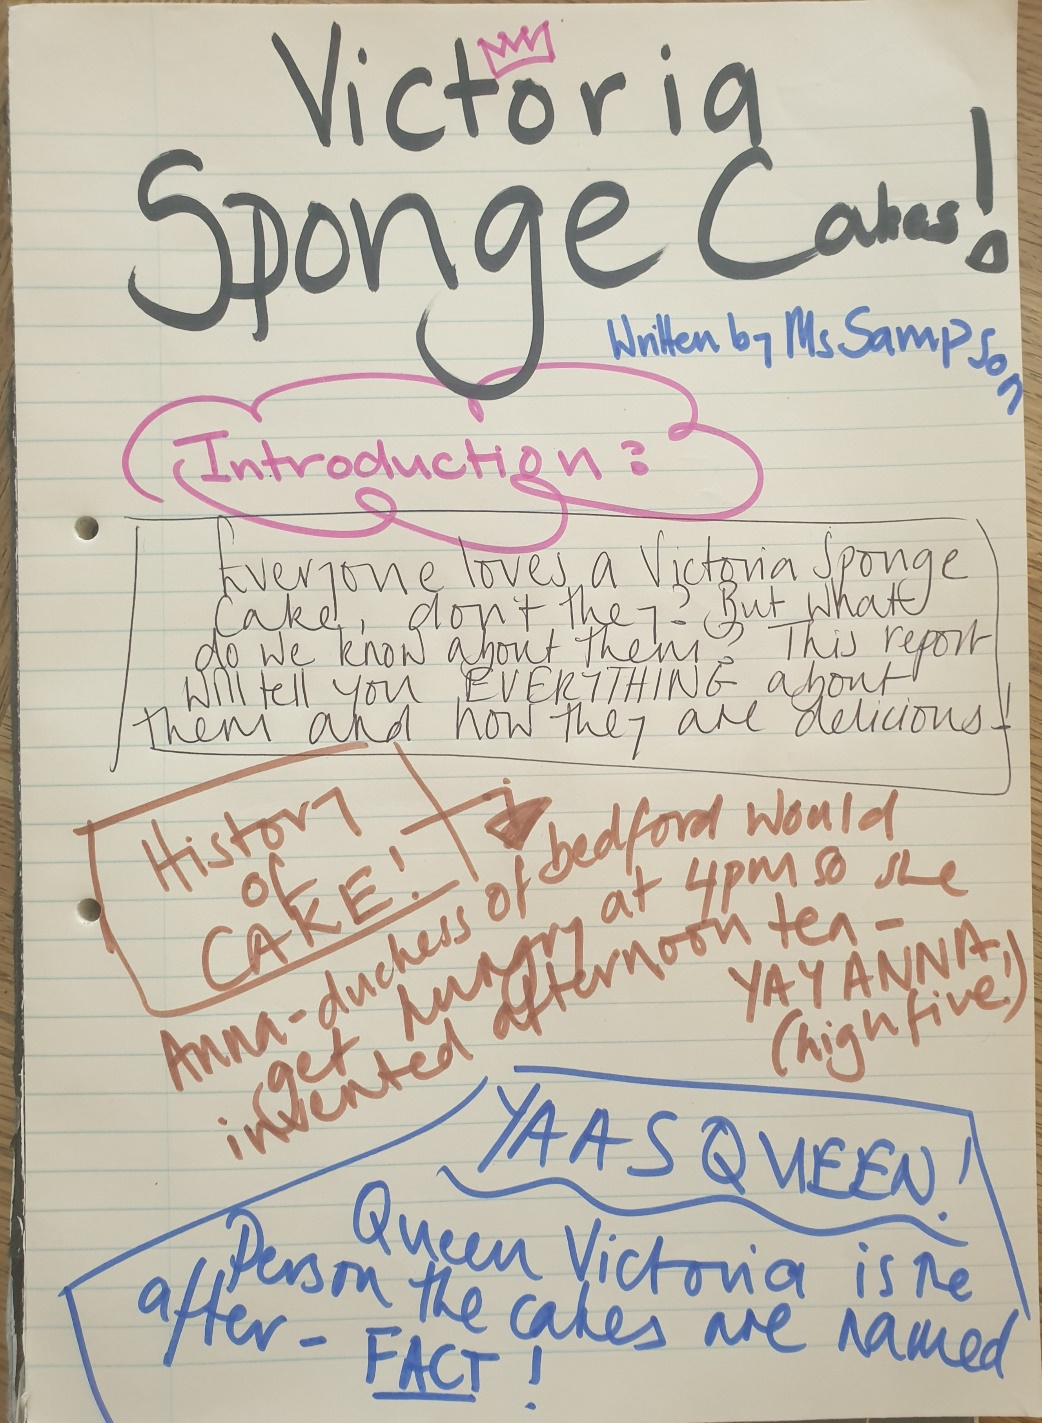 Victoria
Sponge Cakes!
Written by Ms Sampson
Introduction:
Everyone loves a Victoria Sponge
Cake, don't they? But what
do we know about them? This report
will tell you EVERYTHING about
them and how they are delicious!
History
of
CAKE!
Anna-duchess of bedford would
get hungry at 4pm so she
invented afternoon tea -
YAY ANNA!
(high five!)
YAAS QUEEN!
Queen Victoria is the
Person the cakes are named
after - FACT!